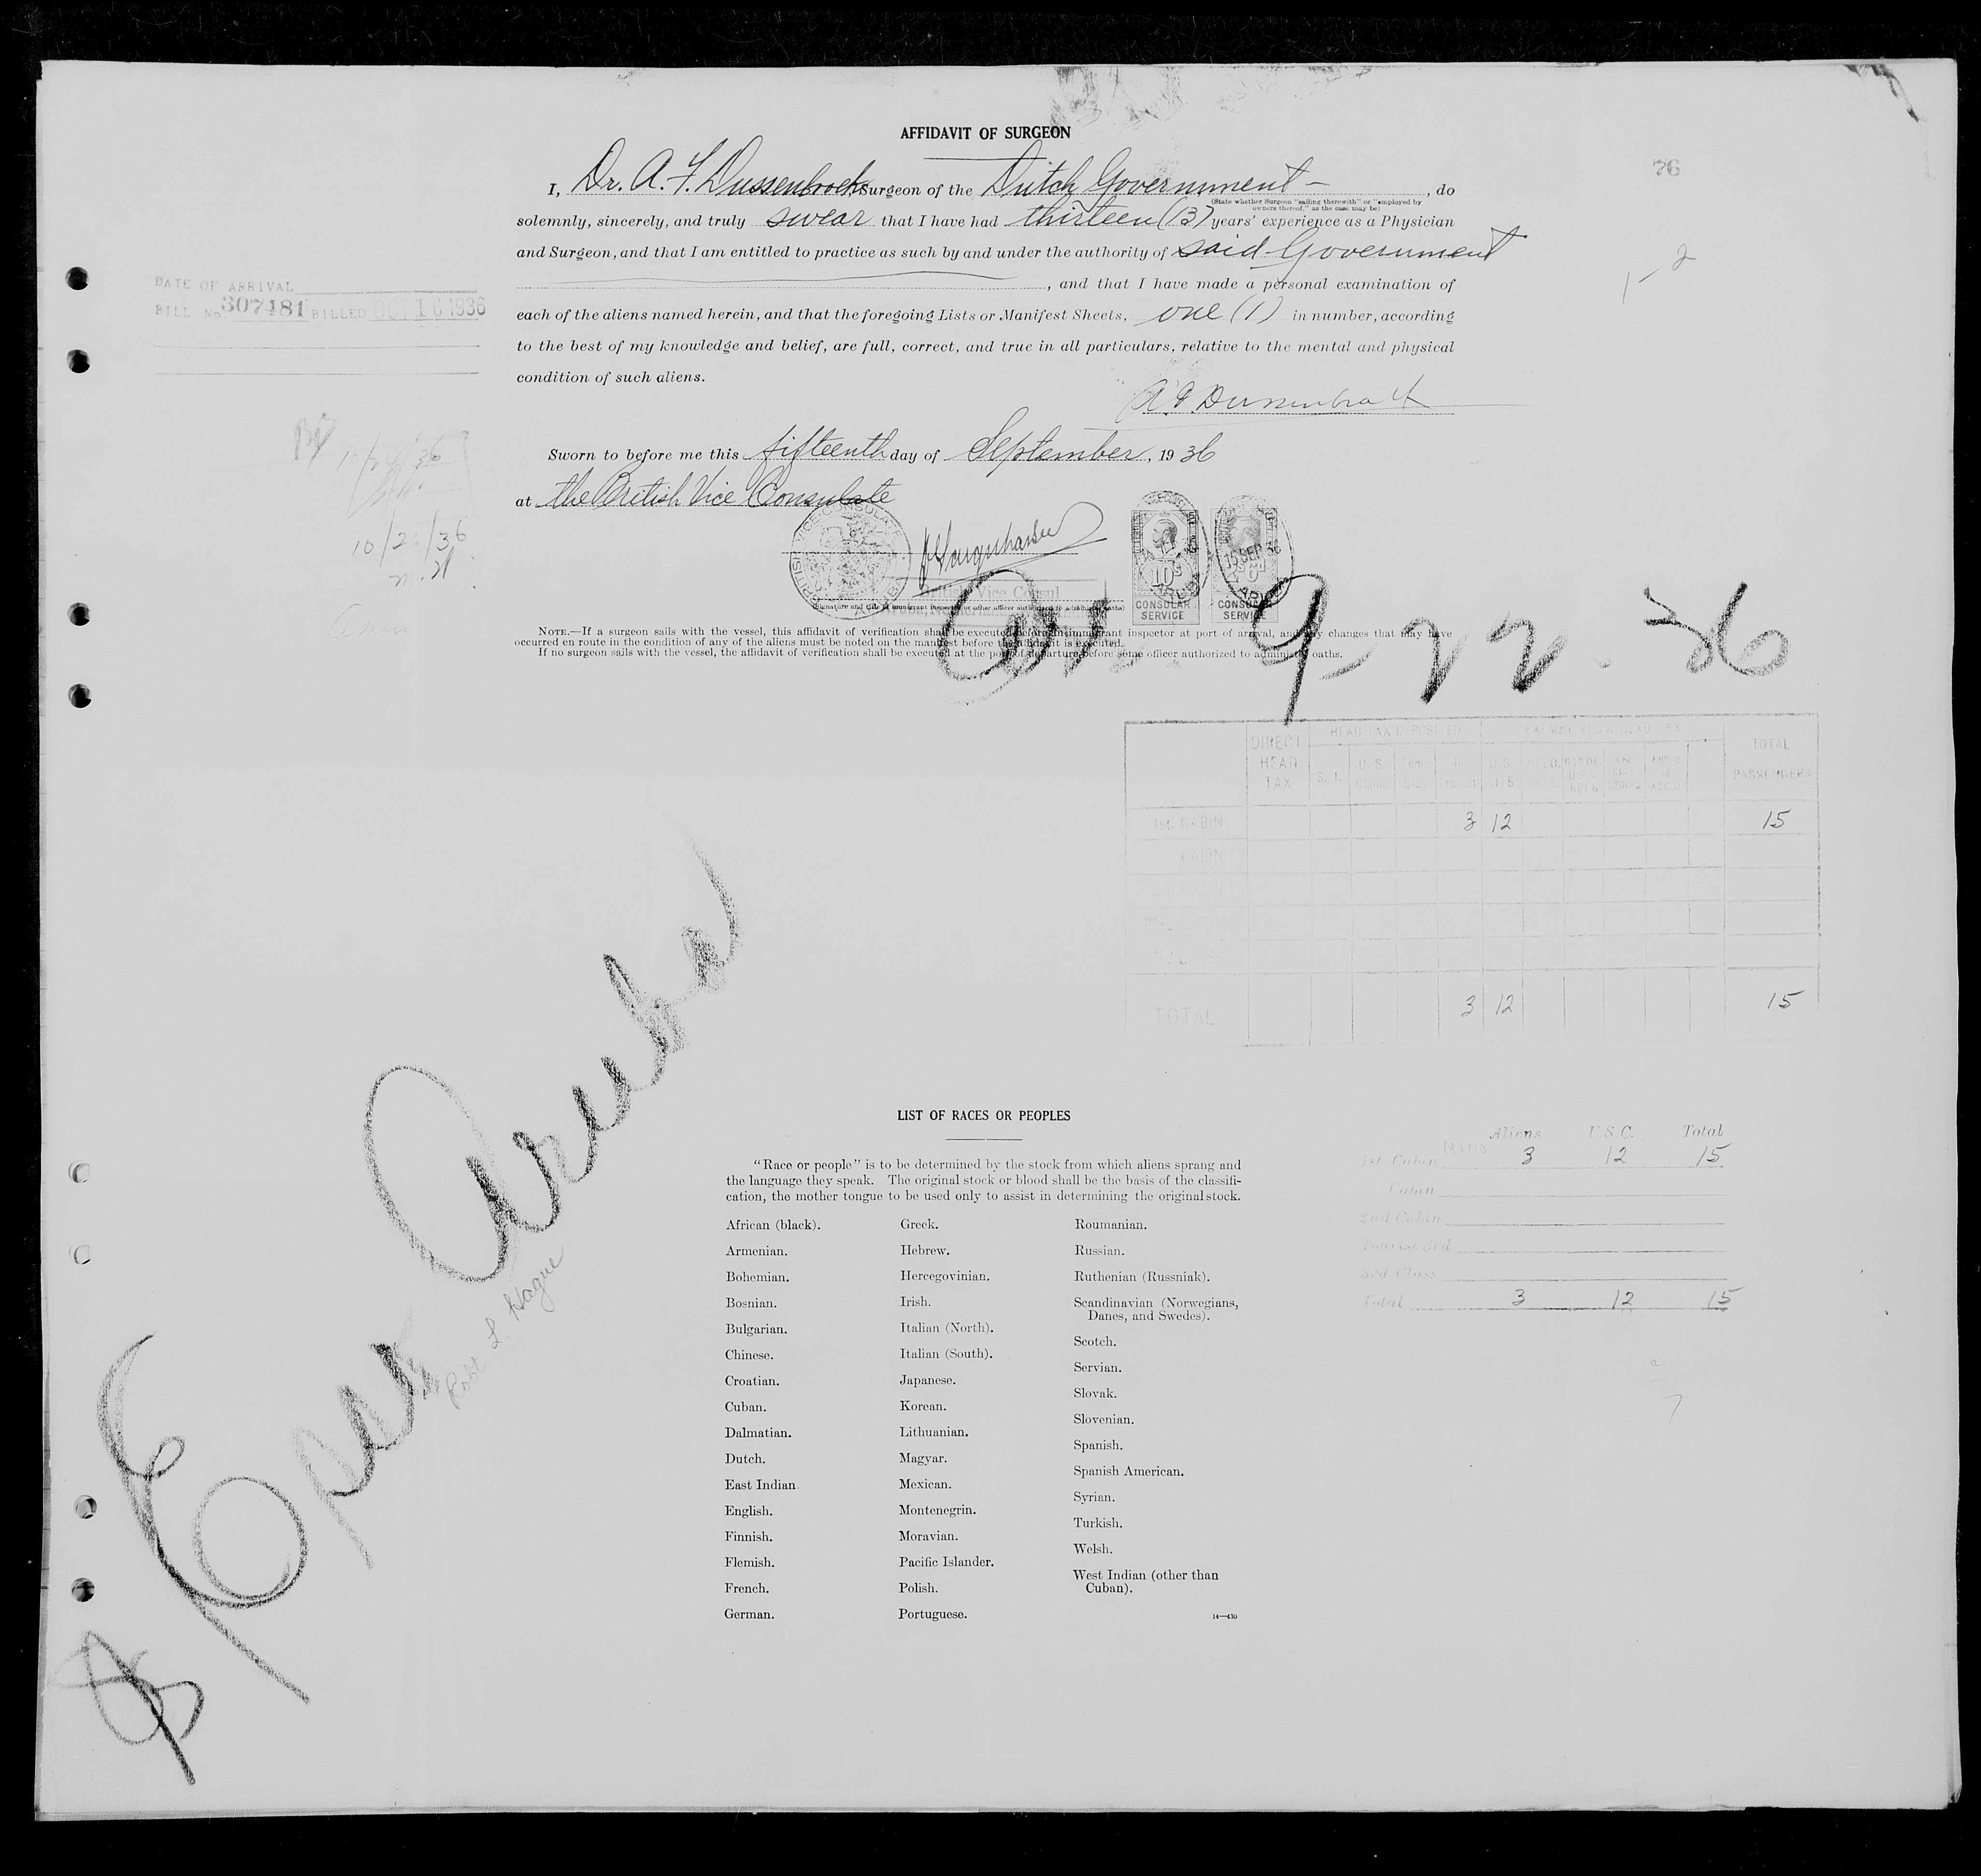 AFFIDAVIT OF SURGEON
76
I, Dr. A. F. Dussenbroek Surgeon of the Dutch Government - , do
(State whether Surgeon "sailing therewith" or "employed by
owners thereof," as the case may be)
solemnly, sincerely, and truly swear that I have had thirteen (13) years' experience as a Physician
and Surgeon, and that I am entitled to practice as such by and under the authority of said Government
, and that I have made a personal examination of
1-2
DATE OF ARRIVAL
BILL No 307481 BILLED OCT 16 1936
each of the aliens named herein, and that the foregoing Lists or Manifest Sheets, one (1) in number, according
to the best of my knowledge and belief, are full, correct, and true in all particulars, relative to the mental and physical
condition of such aliens.
Sworn to before me this fifteenth day of September, 19 36
at the British Vice Consulate
10/24/36
10/26/36
BRITISH VICE-CONSULATE
ARUBA
British Vice Consul
(Signature and title of immigrant inspector or other officer authorized to administer oaths)
10s
CONSULAR
SERVICE
15 SEP 36
CONSULAR
SERVICE
NOTE.—If a surgeon sails with the vessel, this affidavit of verification shall be executed before an immigrant inspector at port of arrival, and any changes that may have
occurred en route in the condition of any of the aliens must be noted on the manifest before the affidavit is executed.
If no surgeon sails with the vessel, the affidavit of verification shall be executed at the port of departure before some officer authorized to administer oaths.
Arr. 9-22-36
DIRECT HEAD TAX
HEAD TAX DEPOSITED
EXEMPT FROM HEAD TAX
TOTAL PASSENGERS
1st CABIN 3 12 15
CABIN
TOTAL 3 12 15
Aruba
Robt L. Hague
LIST OF RACES OR PEOPLES
"Race or people" is to be determined by the stock from which aliens sprang and
the language they speak. The original stock or blood shall be the basis of the classifi-
cation, the mother tongue to be used only to assist in determining the original stock.
African (black).
Armenian.
Bohemian.
Bosnian.
Bulgarian.
Chinese.
Croatian.
Cuban.
Dalmatian.
Dutch.
East Indian.
English.
Finnish.
Flemish.
French.
German.
Greek.
Hebrew.
Hercegovinian.
Irish.
Italian (North).
Italian (South).
Japanese.
Korean.
Lithuanian.
Magyar.
Mexican.
Montenegrin.
Moravian.
Pacific Islander.
Polish.
Portuguese.
Roumanian.
Russian.
Ruthenian (Russniak).
Scandinavian (Norwegians,
Danes, and Swedes).
Scotch.
Servian.
Slovak.
Slovenian.
Spanish.
Spanish American.
Syrian.
Turkish.
Welsh.
West Indian (other than
Cuban).
14—430
Aliens U.S.C. Total
1st Cabin 3 12 15
Cabin
2nd Cabin
Tourist 3rd
3rd Class
Total 3 12 15